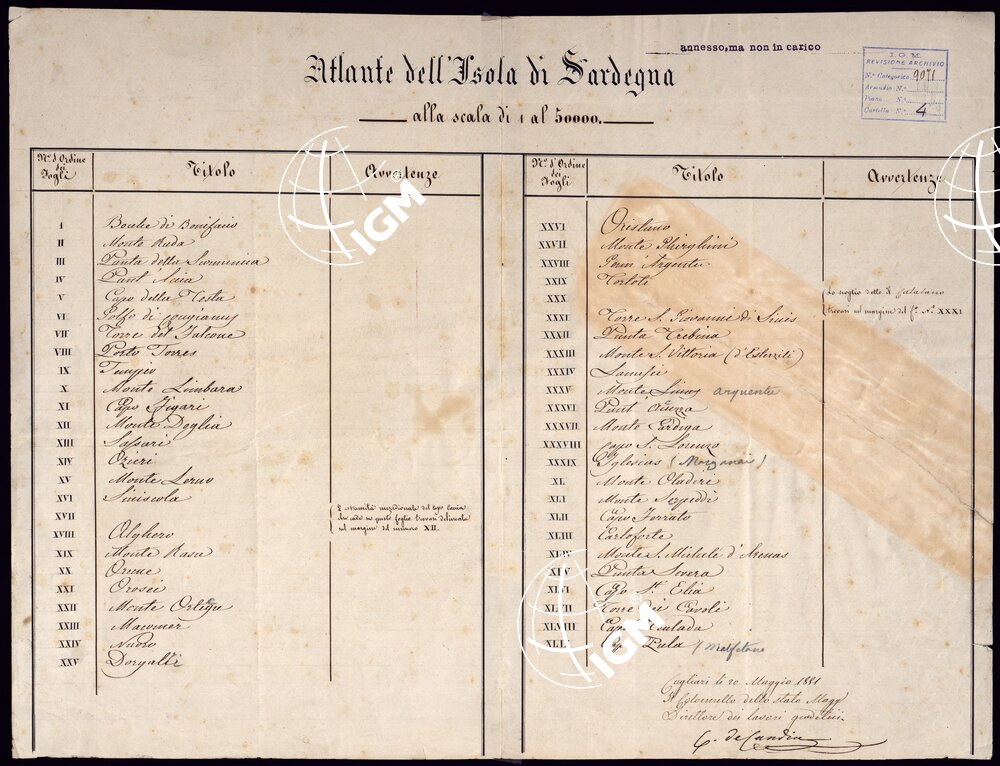 annesso, ma non in carico
I. G. M.
REVISIONE ARCHIVIO
N.° Categorico 9071
Armadio N.°
Piano N.°
Cartella N.° 4
Atlante dell'Isola di Sardegna
alla scala di 1 al 50000.
N.° d'Ordine dei Fogli Titolo Avvertenze
I Bocche di Bonifacio
II Monte Ruda
III Punta della Scomunica
IV Punt'
V Capo della Testa
VI Golfo di
VII Torre del Falcone
VIII Porto Torres
IX Tempio
X Monte Limbara
XI Capo Figari
XII Monte Doglia
XIII Sassari
XIV Ozieri
XV Monte Lerno
XVI Siniscola
XVII L'estremità meridionale del Capo Caccia che cade su questo foglio trovasi delineata sul margine del numero XII.
XVIII Alghero
XIX Monte Rasu
XX Orune
XXI Orosei
XXII Monte Ortigu
XXIII Macomer
XXIV Nuoro
XXV Dorgali
N.° d'Ordine dei Fogli Titolo Avvertenze
XXVI Oristano
XXVII Monte Ghirghini
XXVIII Genn' Argentu
XXIX Tortolì
XXX Lo scoglio detto il Catalano trovasi sul margine del f.° N.° XXXI
XXXI Torre S. Giovanni di Sinis
XXXII Punta Trebina
XXXIII Monte S. Vittoria (d'Esterzili)
XXXIV Lanusei
XXXV Monte Linas Arquentu
XXXVI Punt'
XXXVII Monte Cardiga
XXXVIII Capo S. Lorenzo
XXXIX Iglesias (Marganai)
XL Monte Oladiri
XLI Monte Serpeddì
XLII Capo Ferrato
XLIII Carloforte
XLIV Monte S. Michele d'Arenas
XLV Punta Severa
XLVI Capo S.t Elia
XLVII Torre dei Cavoli
XLVIII Capo Teulada
XLIX Cap. Pula / Malfatano
Cagliari li 20 Maggio 1851
Il Colonnello dello stato Magg.
Direttore dei lavori geodetici
C. de Candia
IGM
IGM